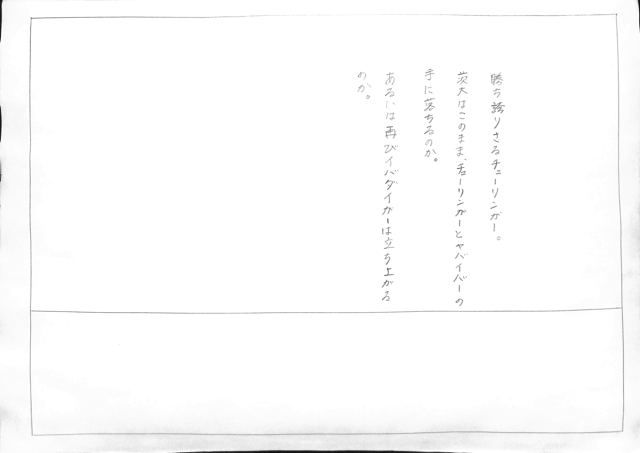 勝ち誇りさるチューリンガー。
茨大はこのまま、チューリンガーとヤバイバーの
手に落ちるのか。
あるいは再びイバダイガーは立ち上がる
のか。